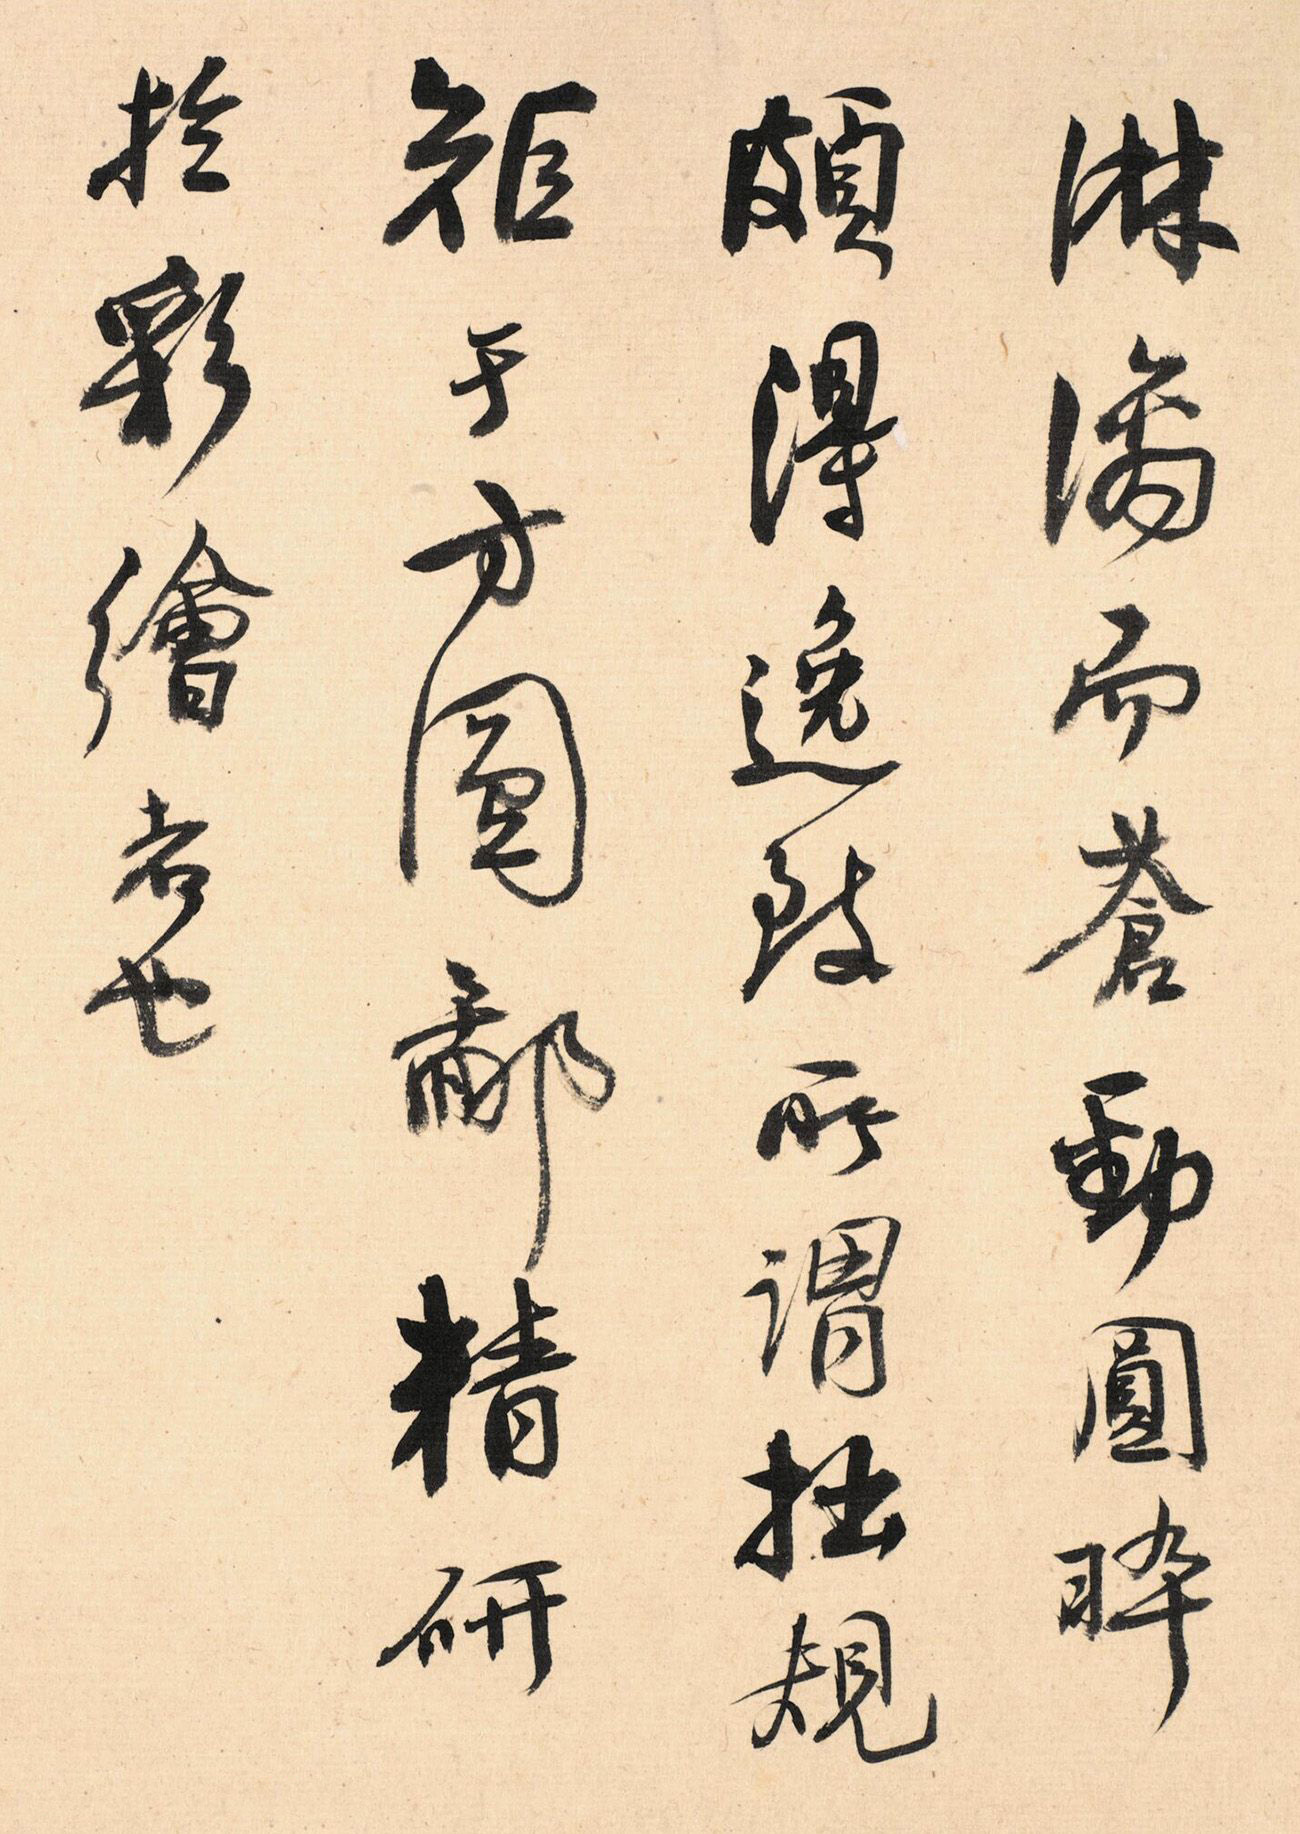 淋漓而蒼勁圓晬
頗得逸致所謂拙規
矩于方圓鄙精研
於彩繪者也